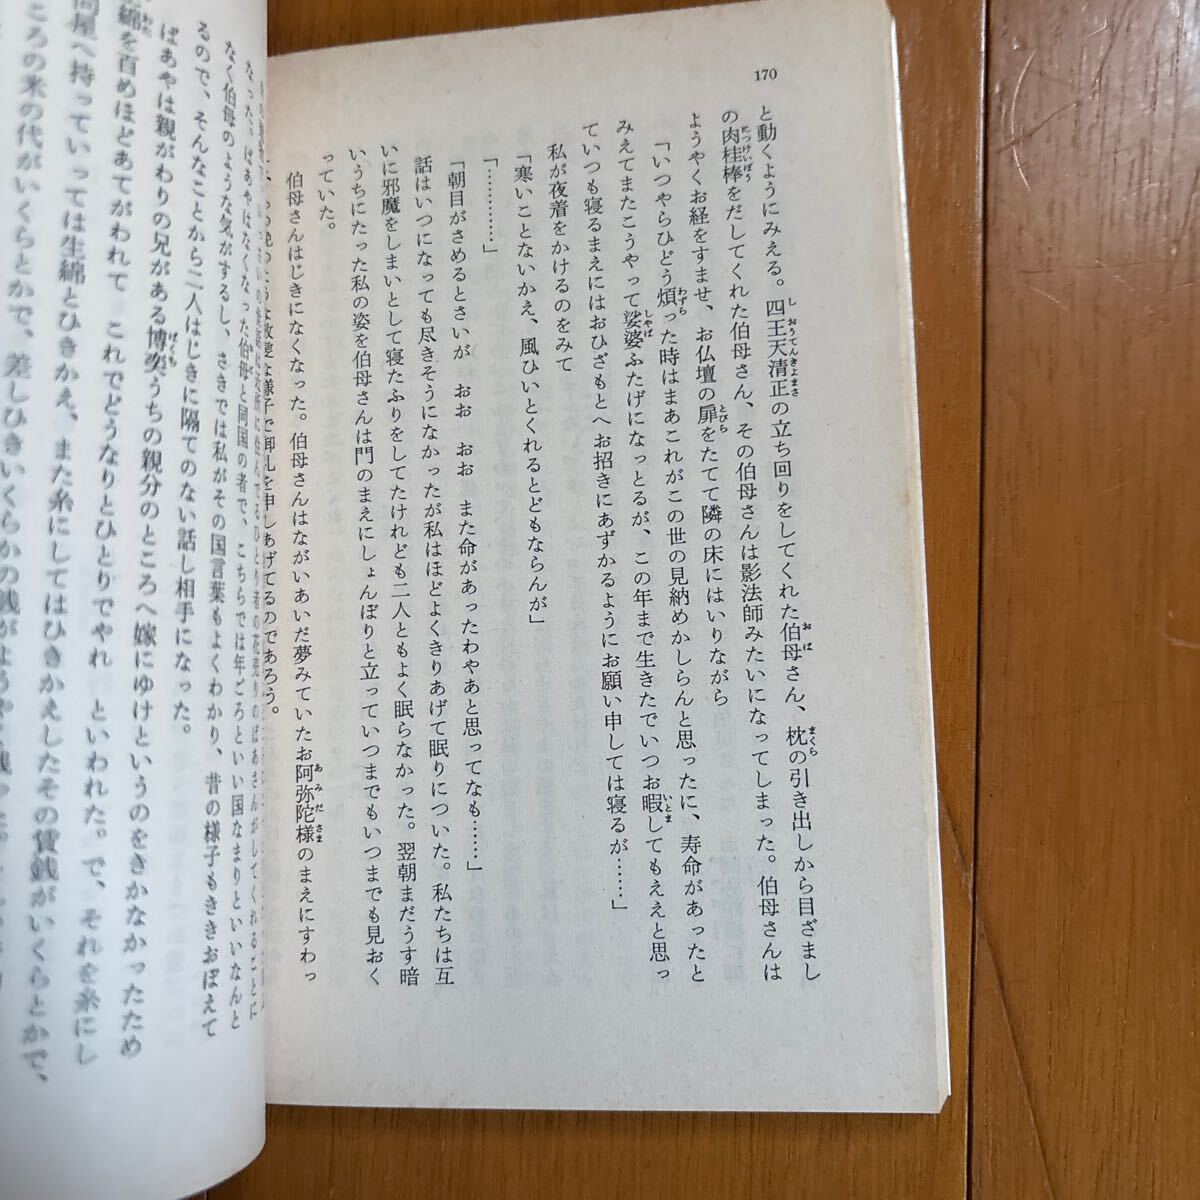 170
と動くようにみえる。四王天清正の立ち回りをしてくれた伯母さん、枕の引き出しから目ざまし
の肉桂棒をだしてくれた伯母さん、その伯母さんは影法師みたいになってしまった。伯母さんは
ようやくお経をすませ、お仏壇の扉をたてて隣の床にはいりながら
「いつやらひどう煩った時はまあこれがこの世の見納めかしらんと思ったに、寿命があったと
みえてまたこうやって娑婆ふたげになっとるが、この年まで生きたでいつお暇してもええと思っ
ていつも寝るまえにはおひざもとへお招きにあずかるようにお願い申しては寝るが……」
私が夜着をかけるのをみて
「寒いことないかえ、風ひいとくれるとどもならんが」
「…………」
「朝目がさめるとさいが　おお　おお　また命があったわやあと思ってなも……」
話はいつになっても尽きそうになかったが私はほどよくきりあげて眠りについた。私たちは互
いに邪魔をしまいとして寝たふりをしてたけれども二人ともよく眠らなかった。翌朝まだうす暗
いうちにたった私の姿を伯母さんは門のまえにしょんぼりと立っていつまでもいつまでも見おく
っていた。
伯母さんはじきになくなった。伯母さんはながいあいだ夢みていたお阿弥陀様のまえにすわっ
な様子で御礼を申しあげてるのであろう。
の花売りのばあさんがしてくれることに
なった。ばあやはなくなった伯母と同国の者で、こちらでは年ごろといい国なまりといいなんと
なく伯母のような気がするし、さきでは私がその国言葉もよくわかり、昔の様子もききおぼえて
るので、そんなことから二人はじきに隔てのない話し相手になった。
ばあやは親がわりの兄がある博奕うちの親分のところへ嫁にゆけというのをきかなかったため
綿を百めほどあてがわれて　これでどうなりとひとりでやれ　といわれた。で、それを糸にし
問屋へ持っていっては生綿とひきかえ、また糸にしてはひきかえしたその賃銭がいくらとかで、
ころの米の代がいくらとかで、差しひきいくらかの銭が